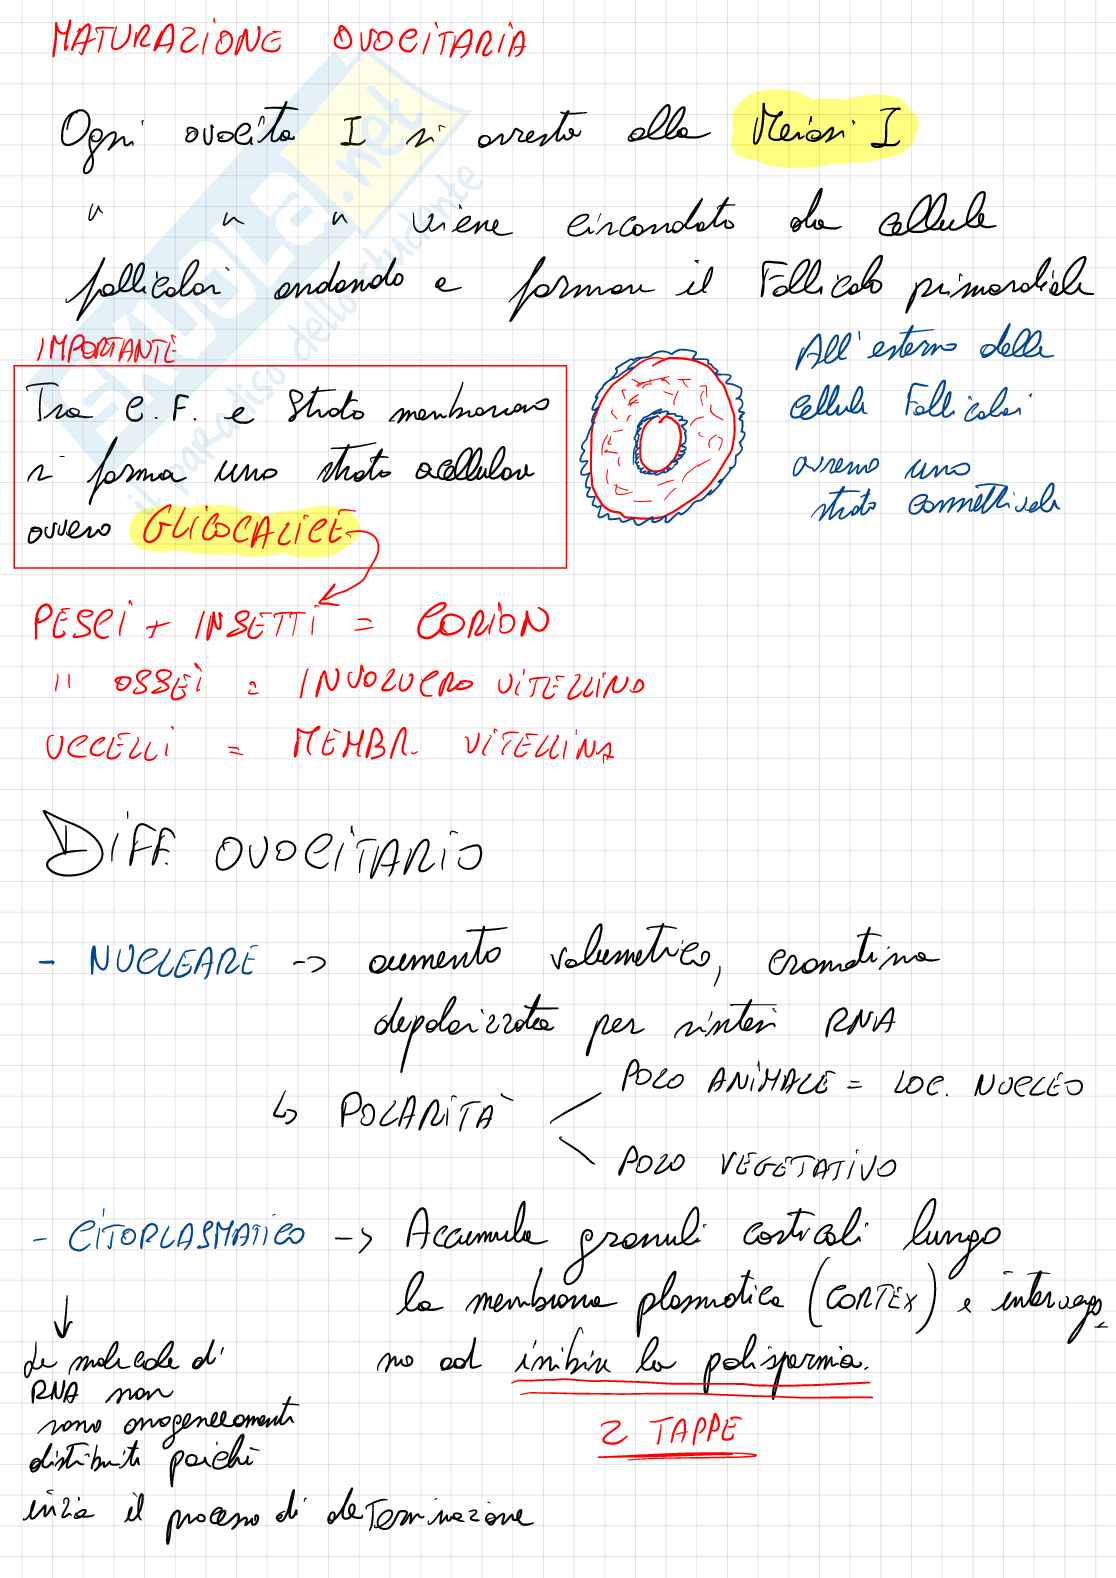 MATURAZIONE OVOCITARIA
Ogni ovocita I si arresta alla Meiosi I
" " " viene circondato da cellule
follicolari andando a formare il Follicolo primordiale
IMPORTANTE
Tra C.F. e Strato membranoso
si forma uno strato acellulare
ovvero GLICOCALICE
All'esterno delle
cellule Follicolari
avremo uno
strato connettivale
PESCI + INSETTI = CORION
" OSSEI = INVOLUCRO VITELLINO
UCCELLI = MEMBR. VITELLINA
DIFF. OVOCITARIO
- NUCLEARE -> aumento volumetrico, cromatina
depolarizzata per sintesi RNA
↳ POLARITÀ
POLO ANIMALE = LOC. NUCLEO
POLO VEGETATIVO
- CITOPLASMATICO -> Accumula granuli corticali lungo
la membrana plasmatica (CORTEX) e intervengo-
no ad inibire la polispermia.
2 TAPPE
↓
Le molecole di
RNA non
sono omogeneamente
distribuite poichè
inizia il processo di determinazione
SKUOLA.net
il paradiso dello studente